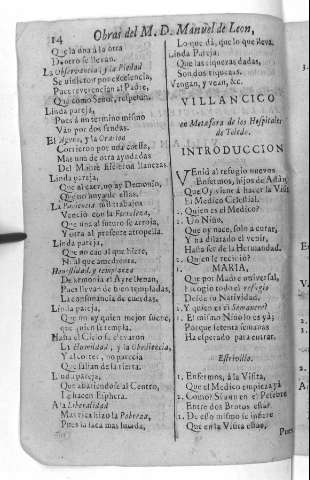 14
Obras del M. D. Manuel de Leon,
Que la una à la otra
De otro se llevan.
La Observancia, y la Piedad
Se unieron por excelencia,
Pues reverencian al Padre,
Que como Señor, respetan.
Linda pareja,
Pues à un termino mismo
Van por dos sendas.
El Ayuno, y la Oracion
Corrieron por una cuesta,
Mas una de otra ayudadas
Del Madre hizieron llanezas.
Linda pareja,
Que al caer, no ay Demonio,
Que no huya de ellas.
La Paciencia
Venciò con la Fortaleza,
Que una al futuro se arroja,
Y otra al presente atropella.
Linda pareja,
Que no cae al que hiere,
Ni al que amedrenta.
Humildad, y templanza
De armonia el Ayre llenan,
Pues llevan de bien templadas,
La consonancia de cuerdas.
Linda pareja,
Que no ay quien mejor suene,
que quien se templa.
Hasta el Cielo se elevaron
La Humildad, y la Obediencia,
Y al correr, no parecia
Que salian de la tierra.
Linda pareja,
Que abatiendose al Centro,
Se hacen Esphera.
A la Liberalidad
Mas rica hizo la Pobreza,
Pues la saca mas honrada,
Lo que dà, que lo que lleva.
Linda Pareja,
Que las riquezas dadas,
Son dos riquezas.
Vengan, y vean, &c.
VILLANCICO
en Metafora de los Hospitales
de Toledo.
INTRODUCCION
VEnid al refugio nuevos
Enfermos, hijos de Adàn,
Que Oy viene à hacer la Visita
El Medico Celestial.
2. Quien es el Medico?
1. Un Niño,
Que oy nace, solo à curar,
Y ha dilatado el venir,
Hasta ser de la Hermandad.
2. Quien le reciviò?
1. MARIA,
Que por Madre universal,
Recogiò todo el refugio
Desde su Natividad.
2. Y quien es el Semanero?
1. El mismo Niño lo es yà;
Porque setenta semanas
Ha esperado para entrar.
Estrivillo.
1. Enfermos, à la Visita,
Que el Medico empieza yà
2. Como? Si aun en el Pesebre
Entre dos Brutos està?
1. De esso mismo se infiere
Que en la Visita està,
Pues